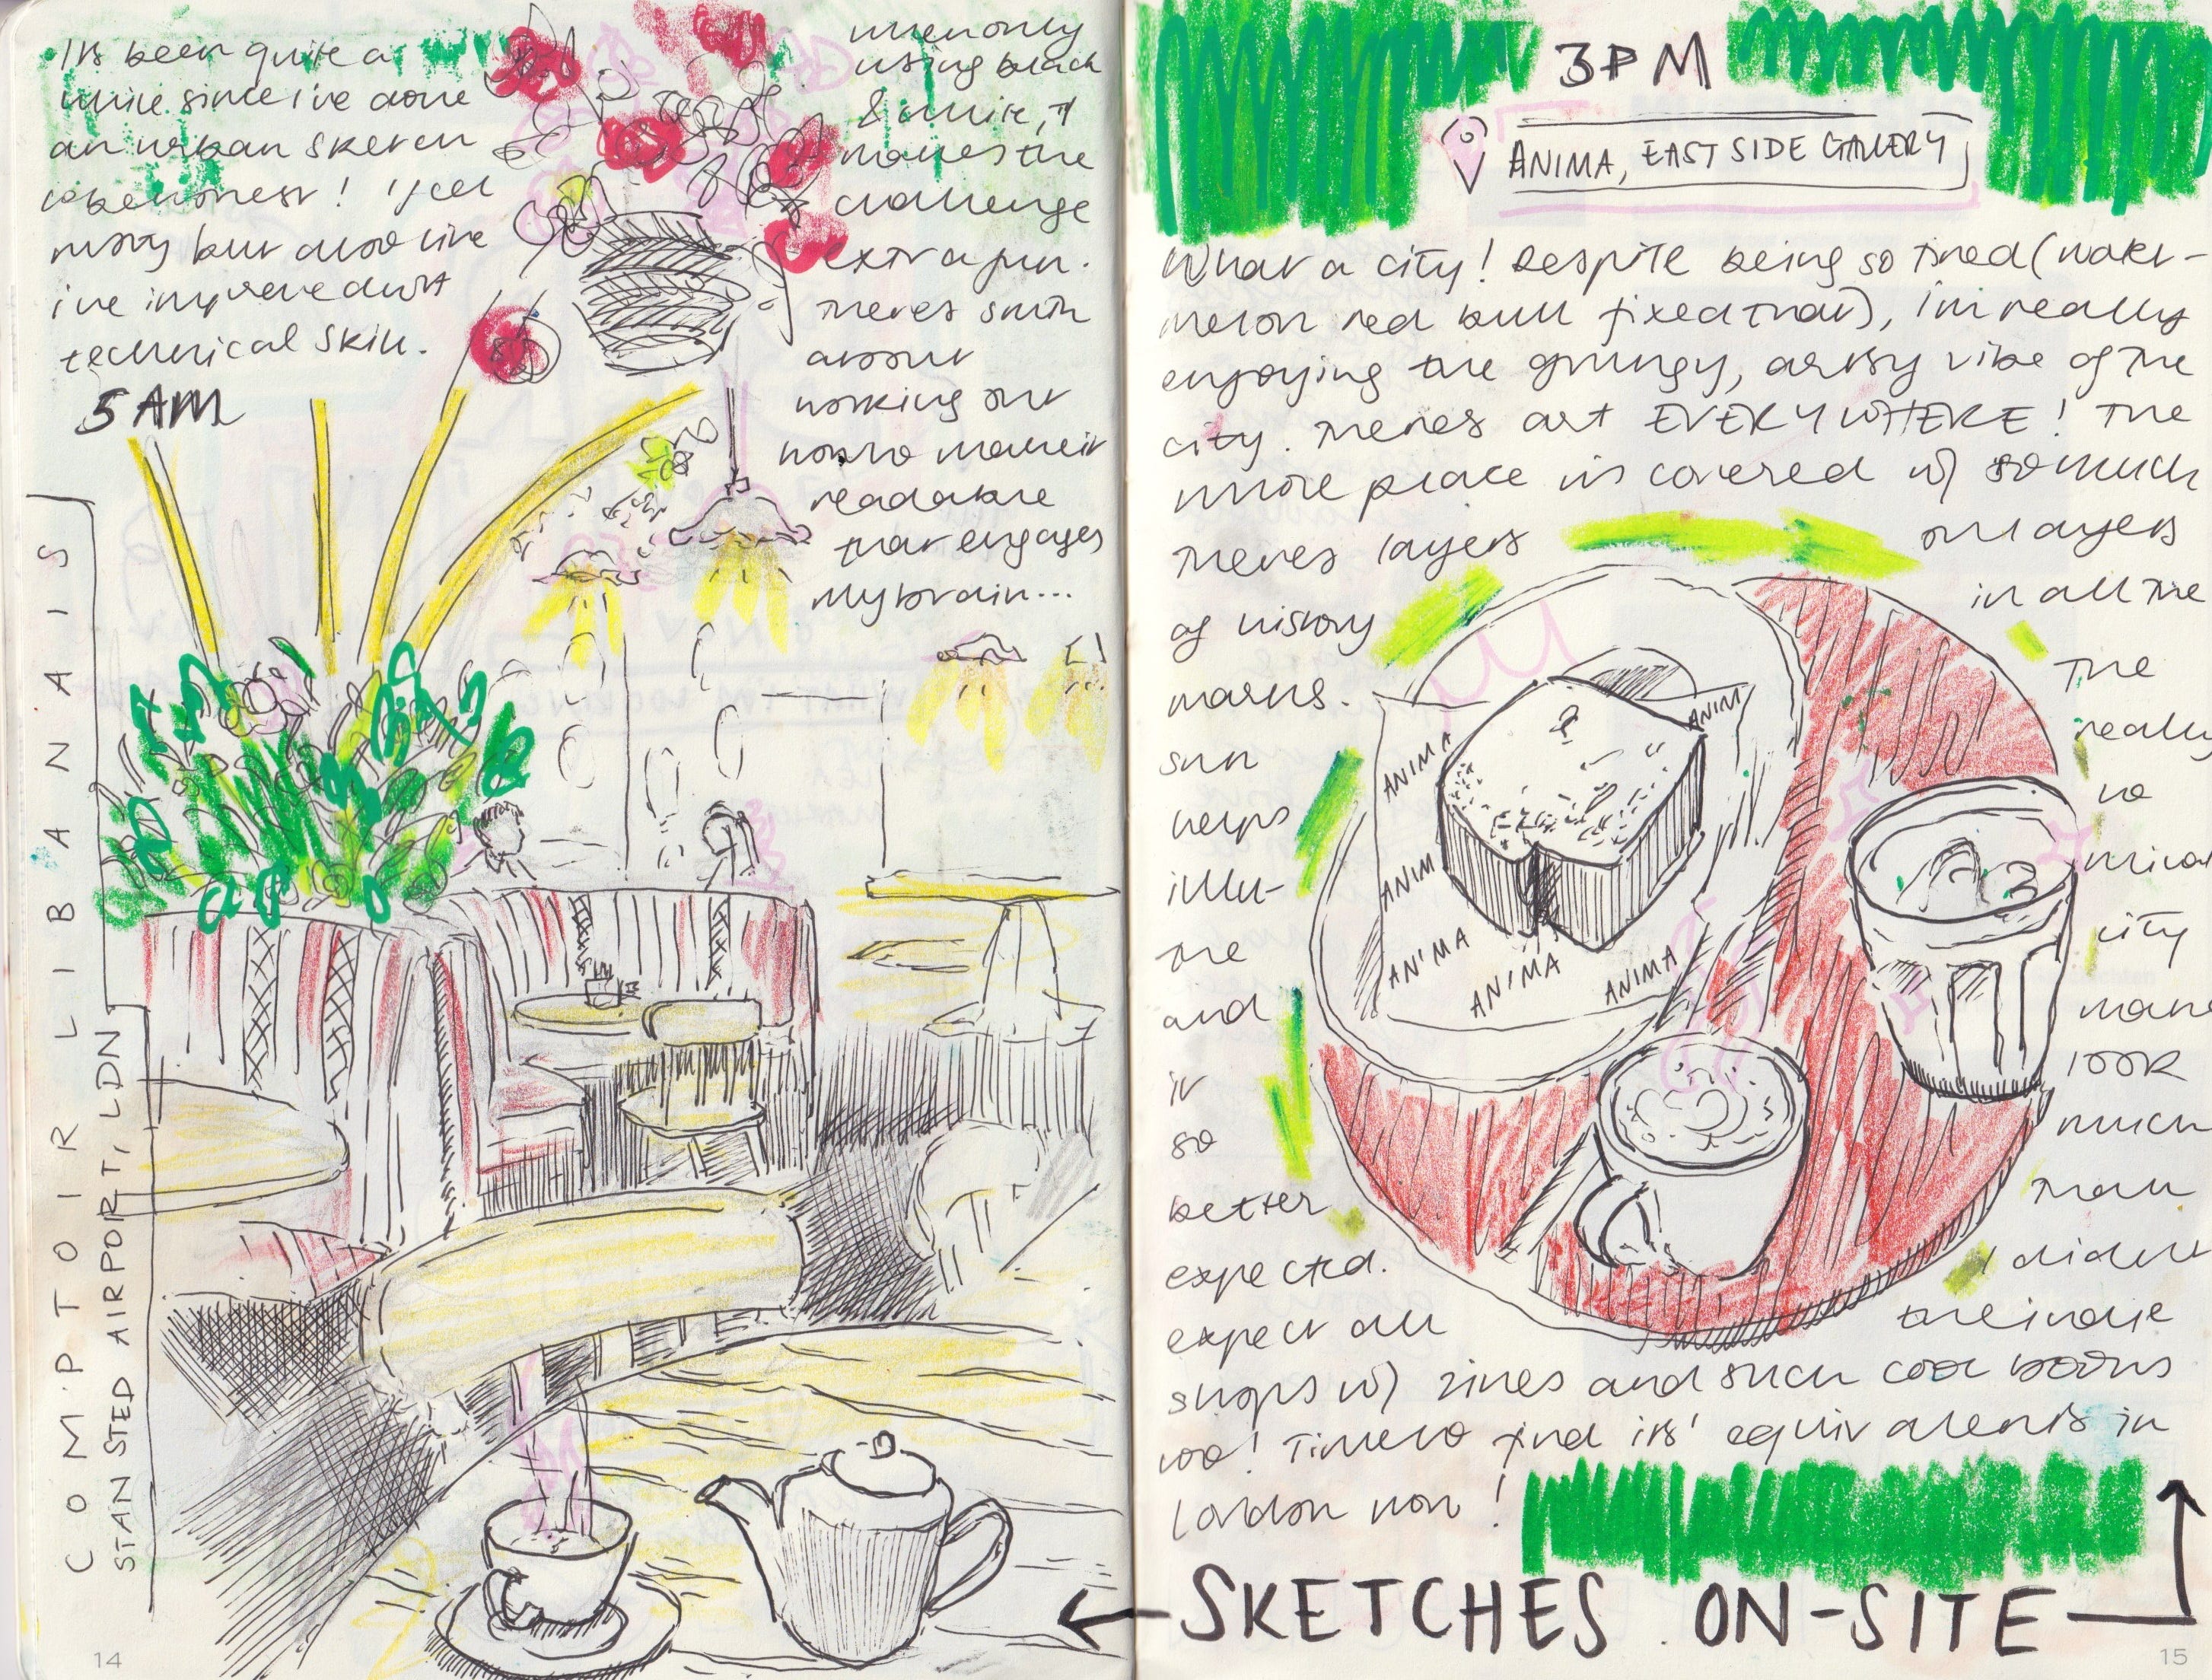 It's been quite a
while since i've done
an urban sketch
to be honest! I feel
rusty but also like
i've improved
technical skill.
5 AM
when only
using black
& white, it
makes the
challenge
extra fun.
There's smth
about
working out
how to make it
readable
that engages
my brain...
COMPTOIR LIBANAIS
STANSTED AIRPORT, LDN
14
3PM
ANIMA, EAST SIDE GALLERY
What a city! Despite being so tired (water-
melon red bull fixed that), i'm really
enjoying the grungy, artsy vibe of the
city. Theres art EVERYWHERE! The
whole place is covered w/ so much
Theres layers on layers
of history in all the
marks. The
sun really
helps to
illu- minate
the city
and make
it look
so much
better than
expected. I didn't
expect all the indie
shops w/ zines and such cool books
too! Time to find its' equivalents in
London now!
ANIMA
ANIM
ANIM
ANIMA
ANIMA
ANIMA
SKETCHES ON-SITE
15